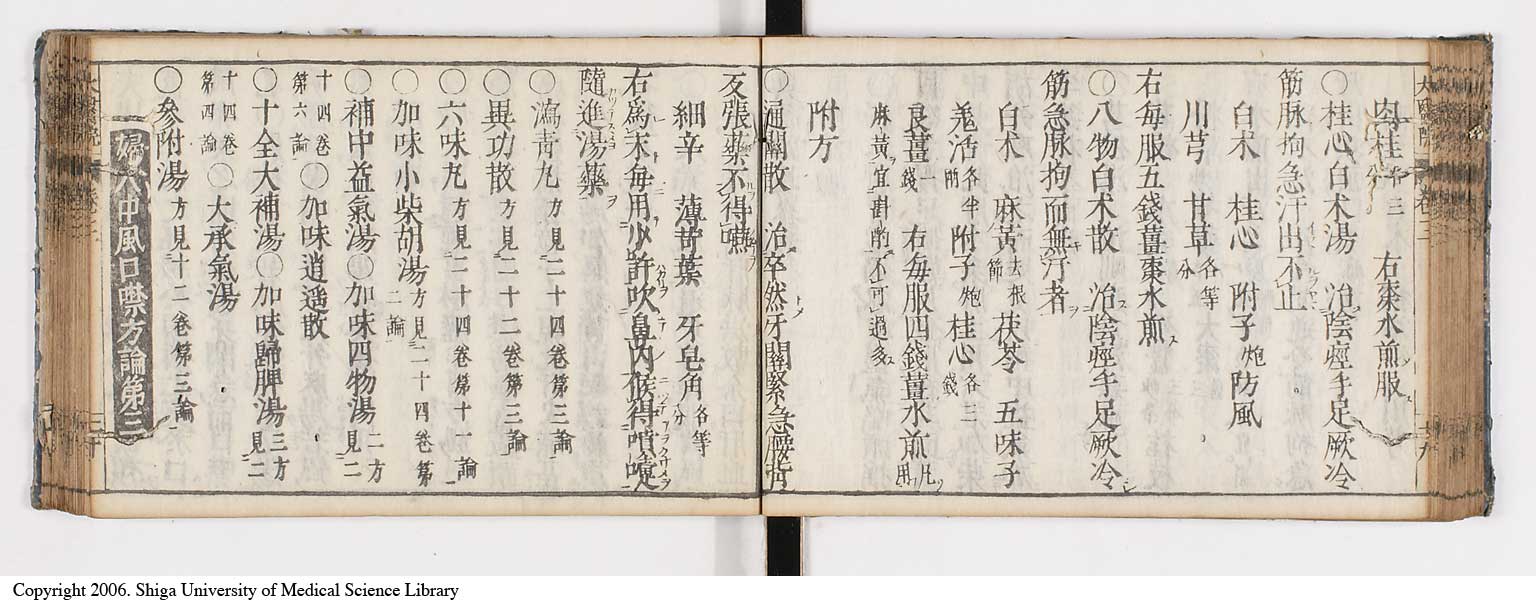 肉桂 半三分 右棗水煎服
○桂心白朮湯 治陰痙手足厥冷
筋脉拘急汗出不止
白朮 桂心 附子炮 防風
川芎 甘草各等分
右每服五錢薑棗水煎
○八物白朮散 治陰痙手足厥冷
筋急脉拘而無汗者
白朮 麻黃去根節 茯苓 五味子
羌活各半兩 附子炮 桂心各三錢
良薑一錢 右每服四錢薑水煎凡用
麻黃宜斟酌不可過多
附方
○通關散 治卒然牙關緊急腰背
反張藥不得嚥
細辛 薄苛葉 牙皂角各等分
右爲末每用少許吹鼻內候得噴嚏
隨進湯藥
○瀉青丸方見二十四卷第三論
○異功散方見二十二卷第三論
○六味丸方見二十四卷第十一論
加味小柴胡湯方見二十四卷第二論
○補中益氣湯○加味四物湯二方見二
十四卷第六論○加味逍遥散
○十全大補湯○加味歸脾湯三方見二
十四卷第四論○大承氣湯
○參附湯方見十二卷第三論
婦人中風口噤方論第三
Copyright 2006. Shiga University of Medical Science Library